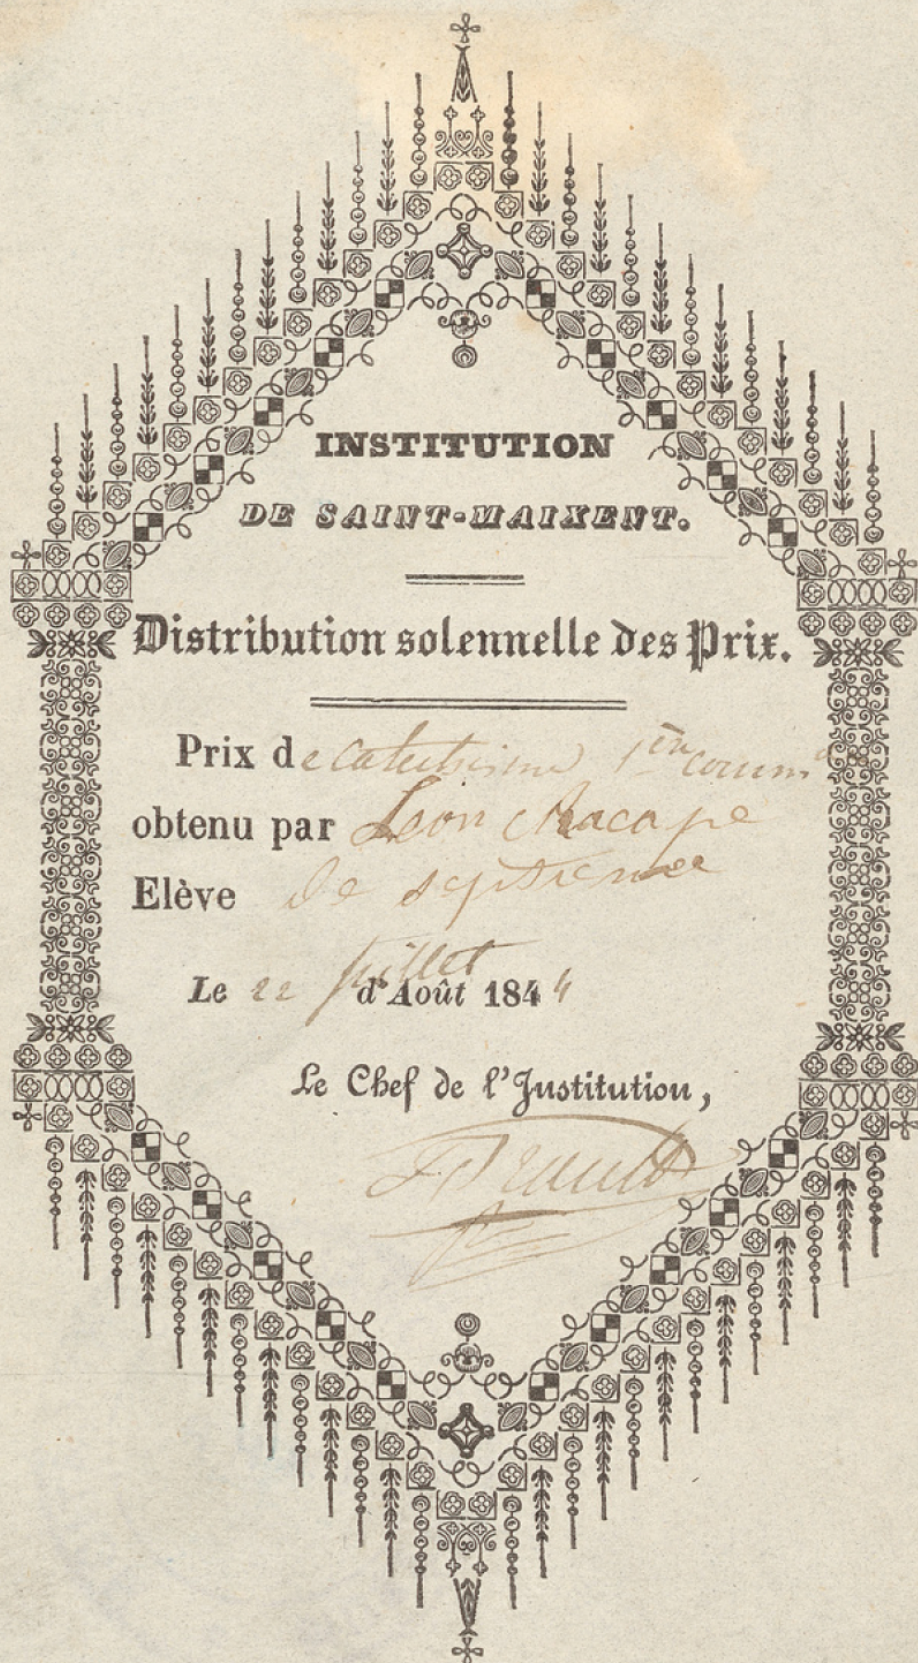 INSTITUTION
DE SAINT-MAIXENT.
Distribution solennelle des Prix.
Prix de Catechisme 1ère comm
obtenu par Léon
Elève de septième
Le 22 juillet d'Août 1844
Le Chef de l'Institution,